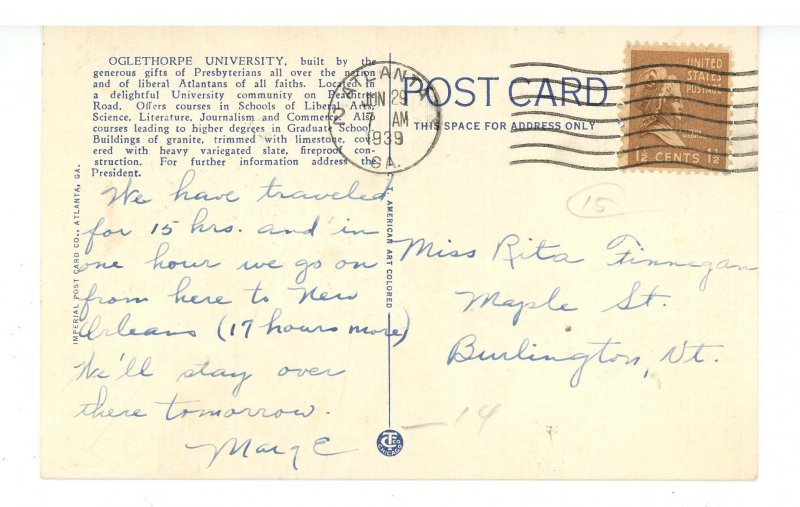 OGLETHORPE UNIVERSITY, built by the
generous gifts of Presbyterians all over the nation
and of liberal Atlantans of all faiths. Located in
a delightful University community on Peachtree
Road. Offers courses in Schools of Liberal Arts,
Science, Literature, Journalism and Commerce. Also
courses leading to higher degrees in Graduate School.
Buildings of granite, trimmed with limestone, cov-
ered with heavy variegated slate, fireproof con-
struction. For further information address the
President.
We have traveled
for 15 hrs. and in
one hour we go on
from here to New
Orleans (17 hours more)
We'll stay over
there tomorrow.
Marge
IMPERIAL POST CARD CO., ATLANTA, GA.
C. T. AMERICAN ART COLORED
CT CO
CHICAGO
ATLANTA
2
JUN 29
AM
1939
GA.
POST CARD
THIS SPACE FOR ADDRESS ONLY
UNITED
STATES
POSTAGE
1½ CENTS 1½
15
Miss Rita Finnegan
Maple St.
Burlington, Vt.
— 14